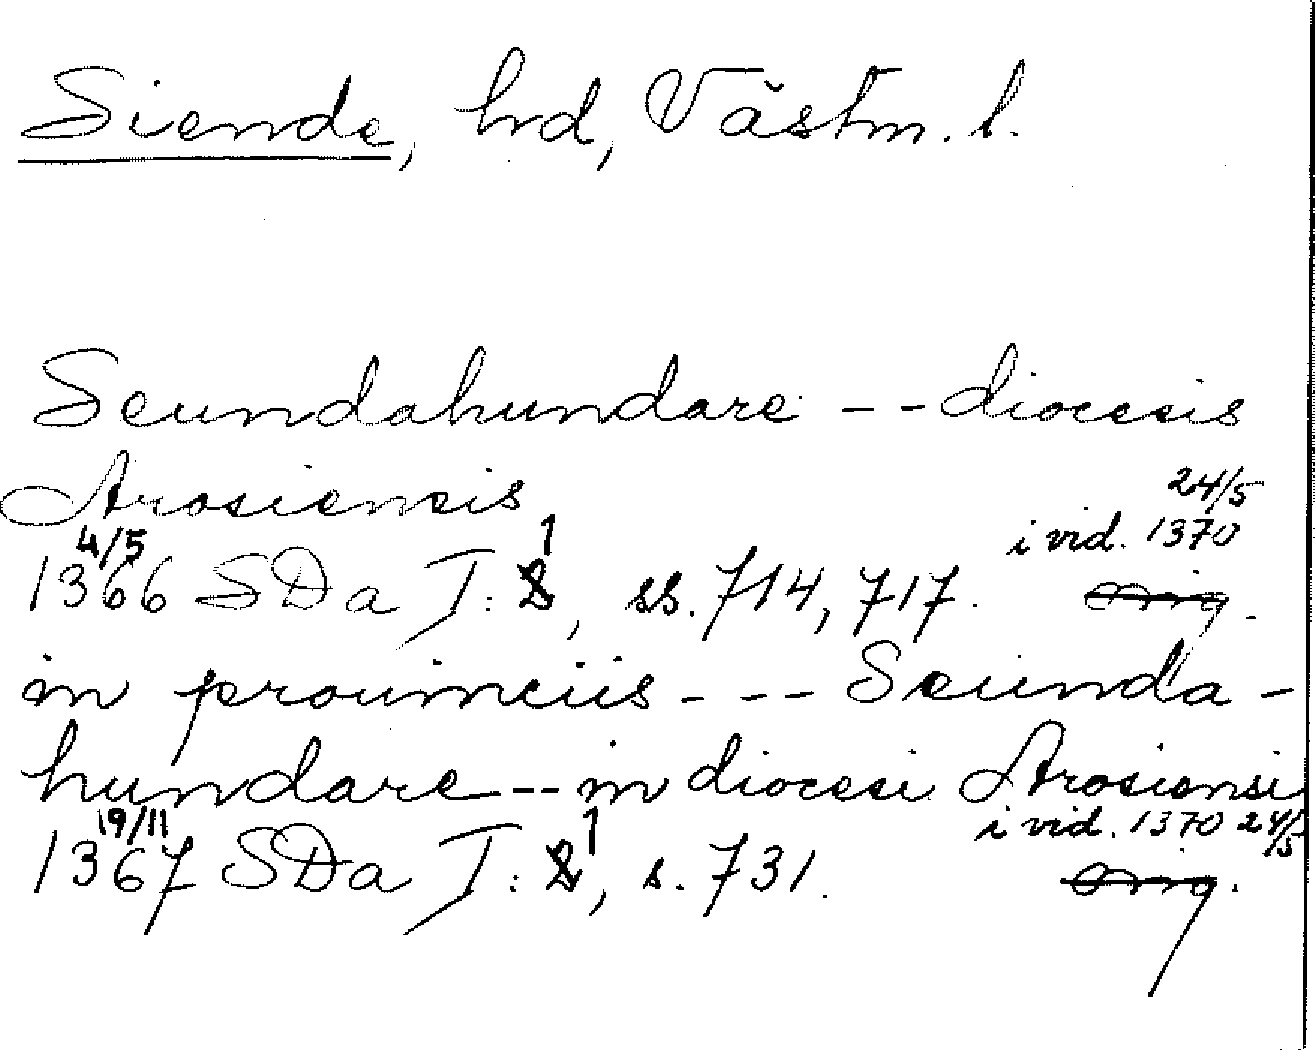 Siende, hrd, Västm. l.
Seundahundare -- diocesis
Arosiensis
24/5
4/5 1 i vid. 1370
1366 SDa I: 8, ss. 714, 717. orig.
in prouinciis --- Seunda-
hundare -- in diocesi Arosiensi
19/11 1 i vid. 1370 24/5
1367 SDa I: 8, s. 731. orig.